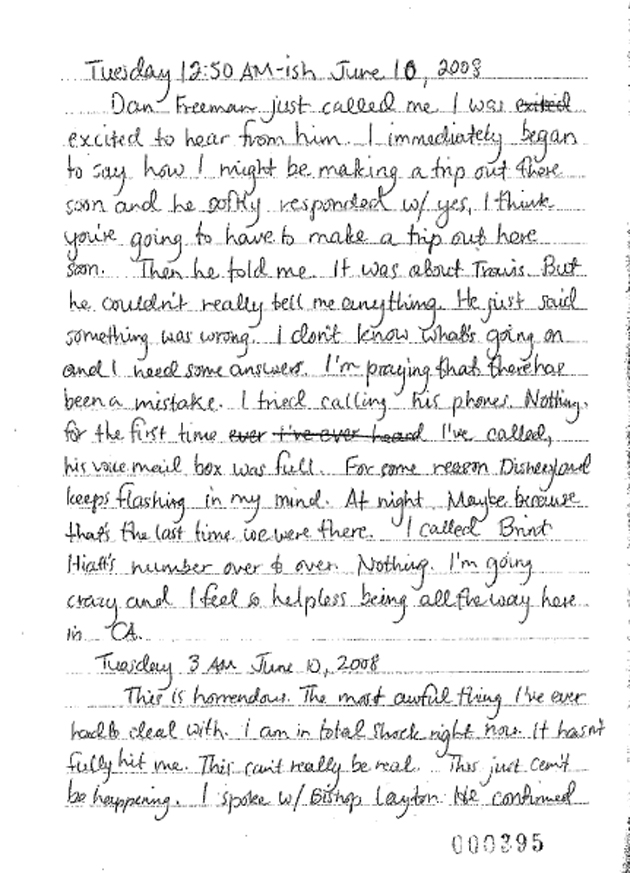 Tuesday 12:50 AM-ish June 10, 2008
Dan Freeman just called me. I was exited
excited to hear from him. I immediately began
to say how I might be making a trip out there
soon and he softly responded w/ yes, I think
you're going to have to make a trip out here
soon. Then he told me. It was about Travis. But
he couldn't really tell me anything. He just said
something was wrong. I don't know what's going on
and I need some answers. I'm praying that there has
been a mistake. I tried calling his phones. Nothing.
for the first time ever t've ever heard I've called,
his voice mail box was full. For some reason Disneyland
keeps flashing in my mind. At night. Maybe because
that's the last time we were there. I called Brint
Hiatt's number over & over. Nothing. I'm going
crazy and I feel so helpless being all the way here
in CA.
Tuesday 3 AM June 10, 2008
This is horrendous. The most awful thing I've ever
had to deal with. I am in total shock right now. It hasn't
fully hit me. This can't really be real. This just can't
be happening. I spoke w/ Bishop Layton. He confirmed
000395